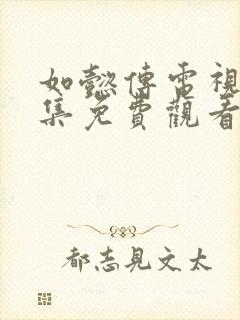 如懿傳電視
集免費觀看
都志見文太